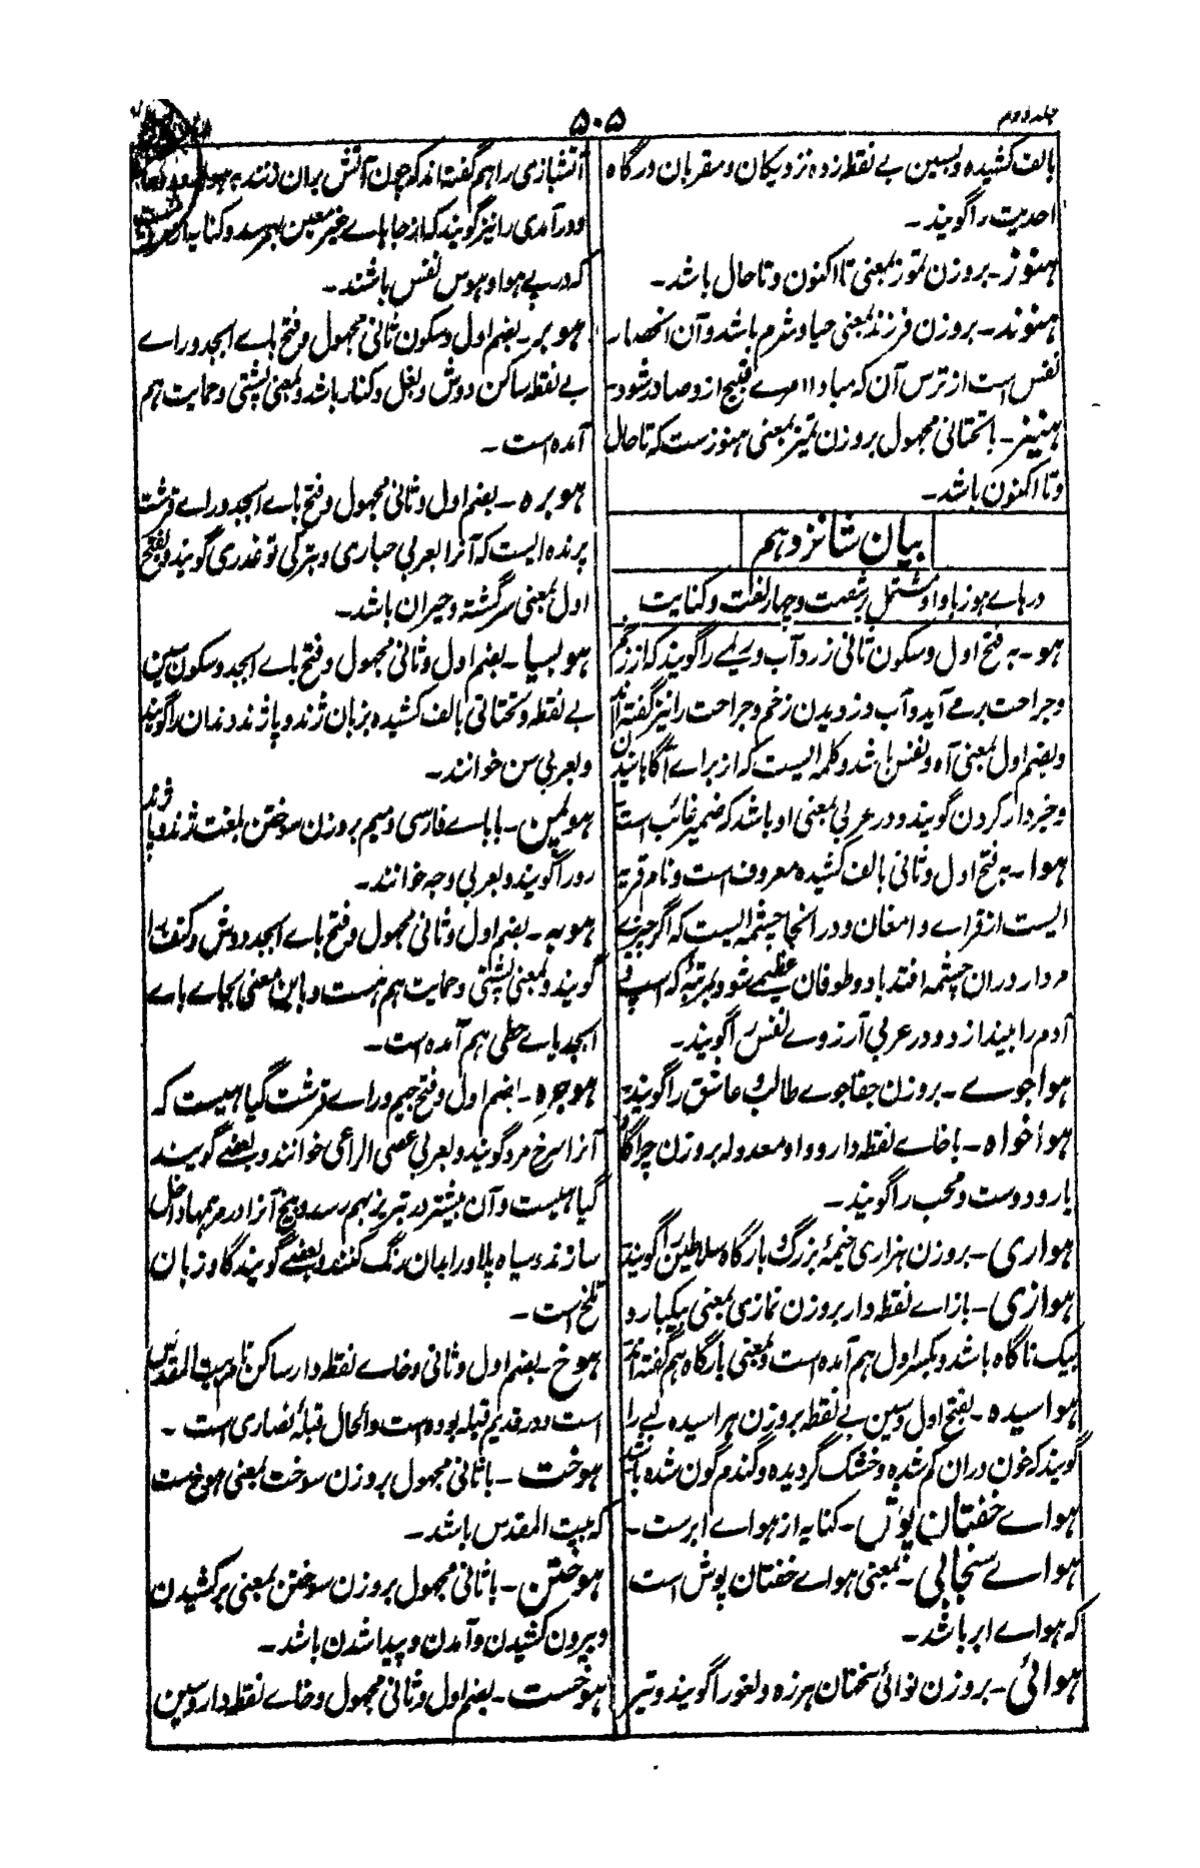 جلد دوم
۵۰۵
بالف کشیده و بسین بے نقطه زده نزدیکان و مقربان درگاه
احدیت را گویند۔
هنوز۔ بروزن تموز بمعنی تا اکنون و تا حال باشد۔
هنوند۔ بروزن فرزند بمعنی حیا و شرم باشد و آن انحصار
نفس است از ترس آن که مبادا امرے قبیح ازو صادر شود۔
هنیز۔ باتحتانی مجهول بروزن تمیز بمعنی هنوزست که تا حال
و تا اکنون باشد۔
بیان شانزدهم
در هاے هوز باواو مشتمل بر شصت و چهار لغت و کنایت
هو۔ به فتح اول و سکون ثانی زردآب و ریمے را گویند که از زخم
و جراحت برمے آید و آب دزدیدن زخم و جراحت را نیز گفته اند
و بضم اول بمعنی آه و نفس باشد و کلمه ایست که از براے آگاهانیدن
و خبردار کردن گویند و در عربی بمعنی او باشد که ضمیر غائب است
هوا۔ به فتح اول و ثانی بالف کشیده معروف است و نام قریه
ایست از قراے دامغان و در انجا چشمه ایست که اگر چیزے
مردار دران چشمه افتد باد و طوفان عظیمے شود بمرتبهٔ که اسپ و
آدم را بیندازد و در عربی آرزوے نفس را گویند۔
هواجوے۔ بروزن جفاجوے طالب و عاشق را گویند
هواخواه۔ باخاے نقطه دار و واو معدوله بروزن چراگاه
یار و دوست و محب را گویند۔
هواری۔ بروزن هزاری خیمهٔ بزرگ و بارگاه سلاطین را گویند
هوازی۔ بازاے نقطه دار بروزن نمازی بمعنی یکبار و
بیک ناگاه باشد و بکسر اول هم آمده است و بمعنی بارگاه هم گفته اند
هواسیده۔ بفتح اول و سین بے نقطه بروزن هراسیده لبے را
گویند که خون دران کم شده و خشک گردیده و گندم گون شده باشد
هواے خفتان پوش۔ کنایه از هواے ابرست۔
هواے سنجابی۔ بمعنی هواے خفتان پوش است
که هواے ابر باشد۔
هوائی۔ بروزن نوائی سخنان هرزه و لغو را گویند و تیر
آتشبازی را هم گفته اند که چون آتش بدان زنند به هوا
و درآمدی را نیز گویند که از جاهاے غیر معین بهم رسد و کنایه از
که درپے هوا و هوس نفس باشند۔
هوبر۔ بضم اول و سکون ثانی مجهول و فتح باے ابجد و راے
بے نقطه ساکن دوش و بغل و کنار باشد و بمعنی پشتی و حمایت هم
آمده است۔
هوبره۔ بضم اول و ثانی مجهول و فتح باے ابجد و راے قرشت
پرنده ایست که آنرا بعربی حباری و بترکی توغدری گویند و بفتح
اول بمعنی سرگشته و حیران باشد۔
هوبسیا۔ بضم اول و ثانی مجهول و فتح باے ابجد و سکون سین
بے نقطه و تحتانی بالف کشیده بزبان ژند و پاژند دندان را گویند
و بعربی سن خوانند۔
هوپمن۔ باباے فارسی و میم بروزن سوختن بلغت ژند و پاژند
رو را گویند و بعربی وجه خوانند۔
هوبه۔ بضم اول و ثانی مجهول و فتح باے ابجد دوش و کتف را
گویند و بمعنی پشتی و حمایت هم هست و باین معنی بجاے باے
ابجد یاے حطی هم آمده است۔
هوجره۔ بضم اول و فتح جیم و راے قرشت گیاهیست که
آنرا سرخ مرد گویند و بعربی عصی الراعی خوانند و بعضے گویند
گیاهیست و آن بیشتر در تبریز بهم رسد و بیخ آنرا در مرهمها داخل
سازند و سیاه پلاو را بدان رنگ کنند و بعضے گویند گاو زبان
تلخ است۔
هوخ۔ بضم اول و ثانی و خاے نقطه دار ساکن نام بیت المقدس
است و در قدیم قبله بوده است و الحال قبلهٔ نصاری است۔
هوخت۔ باثانی مجهول بروزن سوخت بمعنی هوخ ست
که بیت المقدس باشد۔
هوختن۔ باثانی مجهول بروزن سوختن بمعنی برکشیدن
و بیرون کشیدن و آمدن و پیدا شدن باشد۔
هوخست۔ بضم اول و ثانی مجهول و خاے نقطه دار و سین